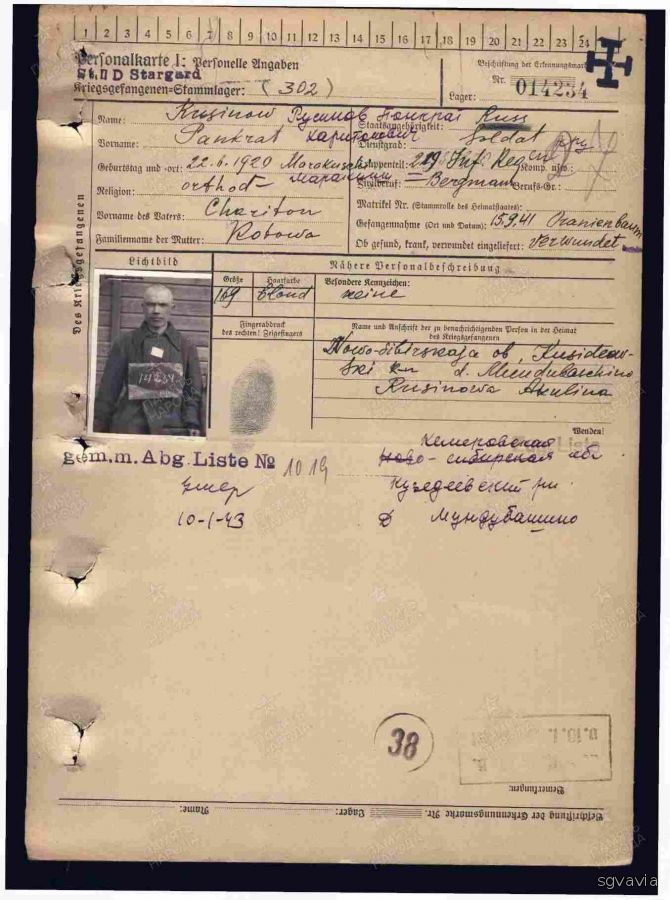 1 2 3 4 5 6 7 8 9 10 11 12 13 14 15 16 17 18 19 20 21 22 23 24
Personalkarte I: Personelle Angaben
St. II D Stargard
Kriegsgefangenen-Stammlager: (302)
Beschriftung der Erkennungsmarke
Nr. 014234
Lager:
Des Kriegsgefangenen
Name: Rusinow Русинов Панкрат
Vorname: Pankrat Харитонович
Geburtstag und -ort: 22.6.1920 Marakusch
Religion: orthod-
Vorname des Vaters: Chariton
Familienname der Mutter: Kotowa
Staatsangehörigkeit: Russ
Dienstgrad: Soldat
Truppenteil: 219 Inf. Reg. Komp. usw.:
Zivilberuf: Bergmann Berufs-Gr.:
Matrikel Nr. (Stammrolle des Heimatstaates):
Gefangennahme (Ort und Datum): 15.9.41 Oranienbaum
Ob gesund, krank, verwundet eingeliefert: verwundet
Lichtbild
14234
Nähere Personalbeschreibung
Größe Haarfarbe Besondere Kennzeichen:
169 blond keine
Fingerabdruck
des rechten! Zeigefingers
Name und Anschrift der zu benachrichtigenden Person in der Heimat
des Kriegsgefangenen
Nowo-Sibirskaja ob, Kusideew-
ski d. Mundubaschino
Rusinowa Akulina
Wenden!
gem.m. Abg. Liste № 1019
Умер
10-1-43
Кемеровская
Ново-сибирская обл
Кузедеевский рн
Д Мундубашино
38
Bemerkungen:
Beschriftung der Erkennungsmarke Nr. Lager: Name:
ПАМЯТЬ НАРОДА
sgvavia